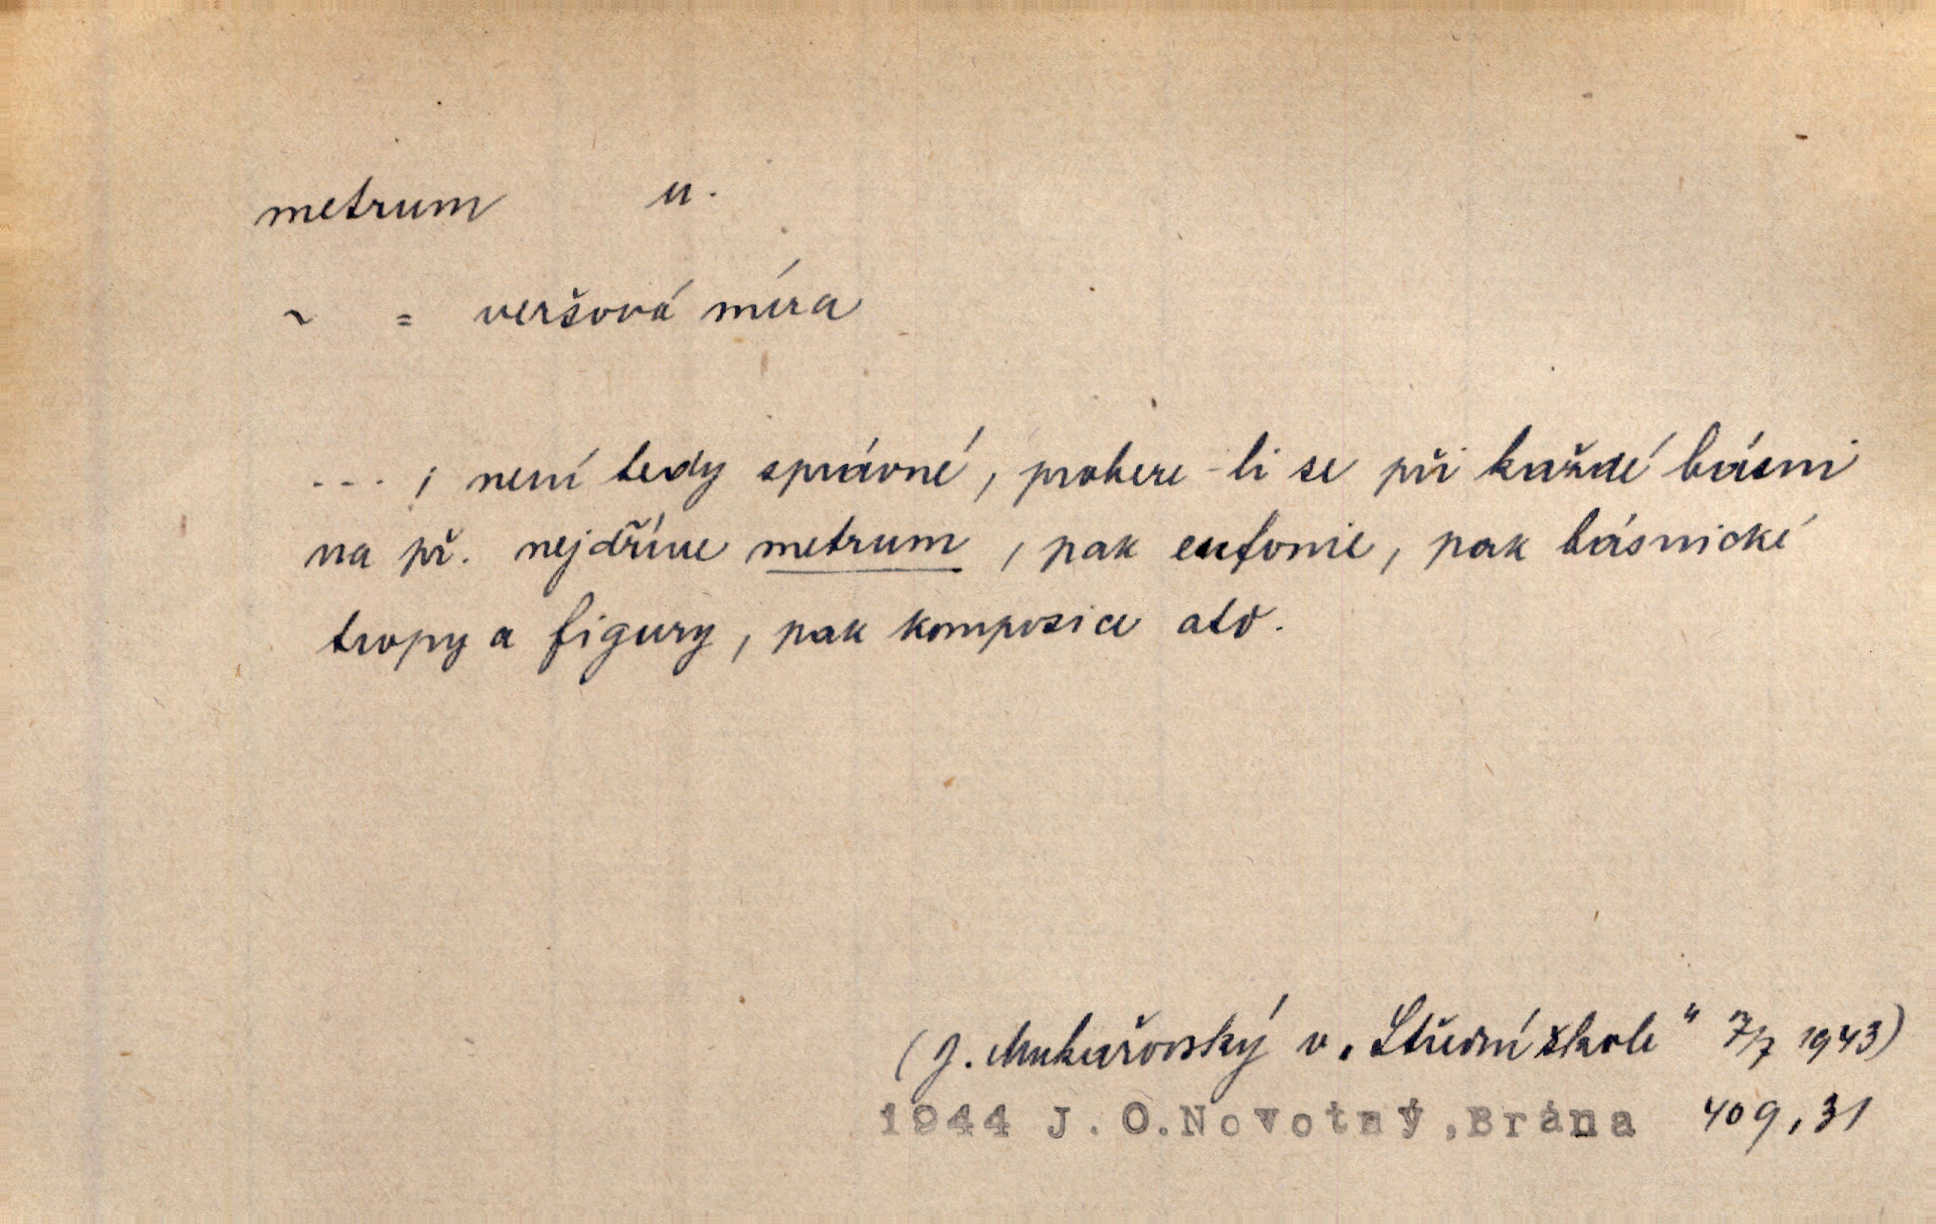 metrum n.
~ = veršová míra
... ; není tedy správné, probere-li se při každé básni
na př. nejdříve metrum, pak eufonie, pak básnické
tropy a figury, pak komposice atd.
(J. Mukařovský v „Střední škole" 7/7 1943)
1944 J. O. Novotný, Brána 409,31